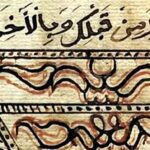 من قَبْلِكَ وَبِالْأَخ